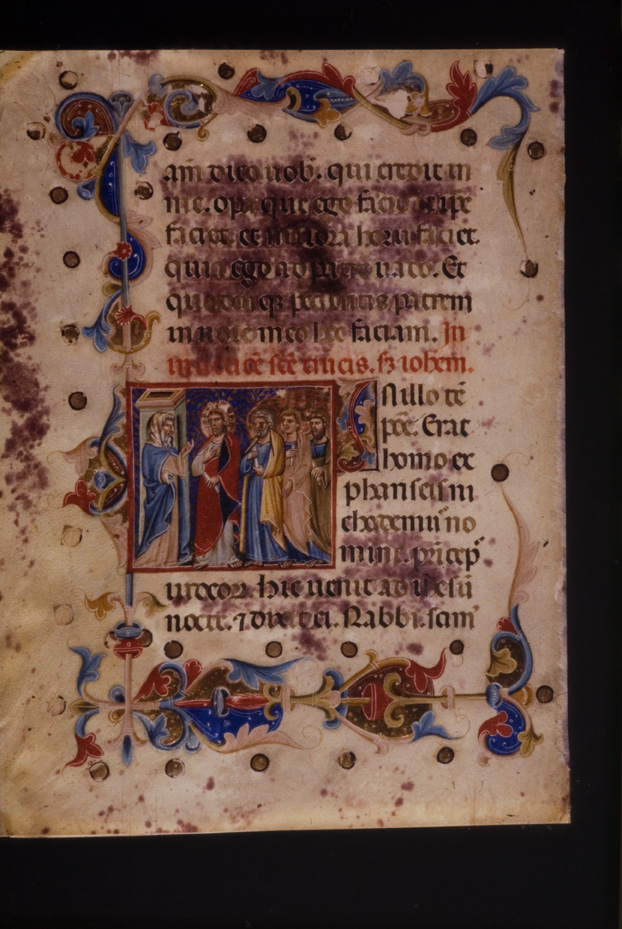 am dico uob. qui credit in
me. opa que ego facio et ipe
faciet. et maiora horu faciet.
quia ego ad patrem uado. Et
quodcuqz petieritis patrem
in noie meo hoc faciam. In
sce crucis. s iohem.
In illo te
pore. Erat
homo ex
phariseis ni
chodemus no
mine. princep
iudeor. hic uenit ad iesu
nocte. ⁊ dixit ei. Rabbi. scim